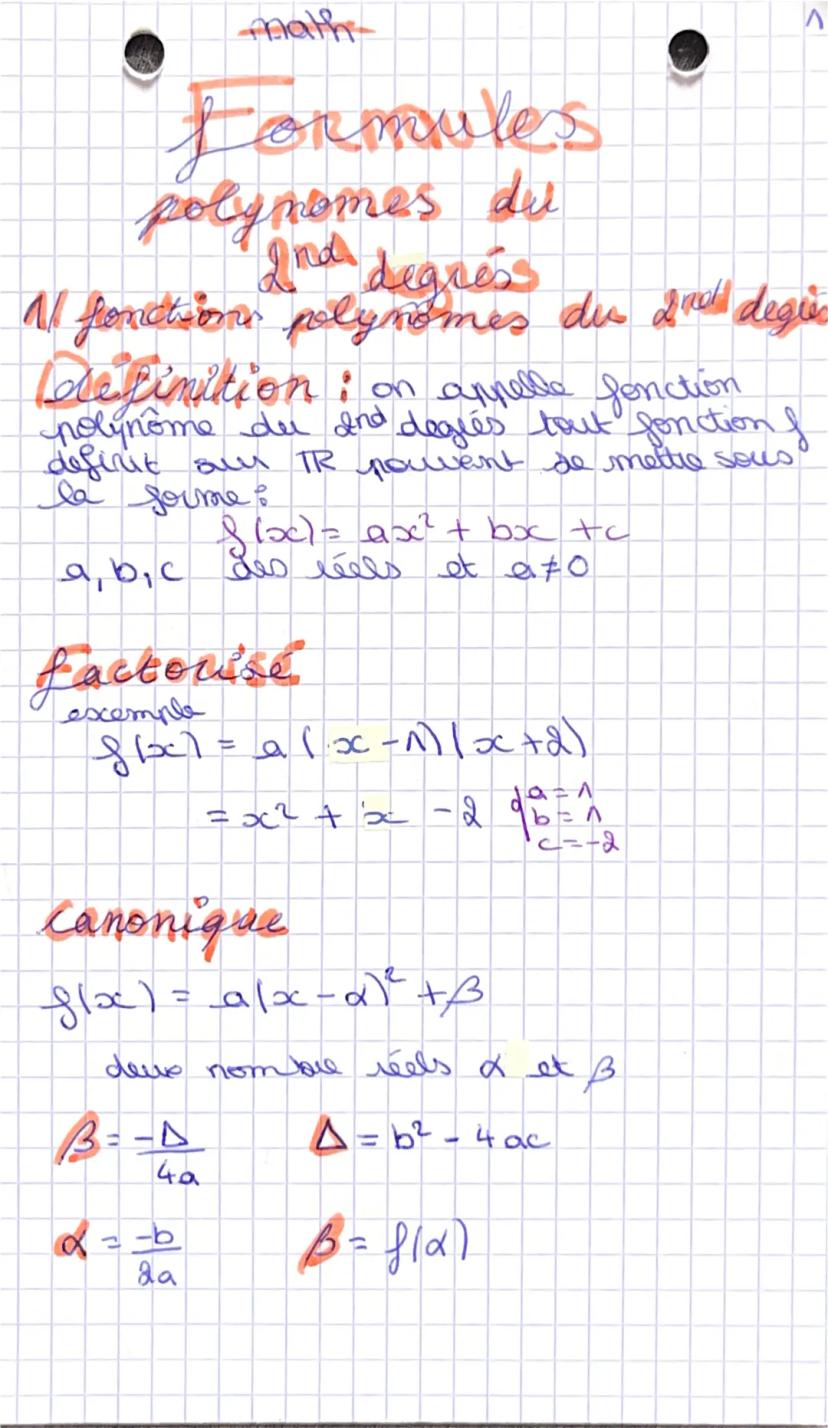 math
1
Formules
polynomes du
2nd degrés
1/ fonctions polynômes du 2nd degrés
Définition : on appelle fonction
polynôme du 2nd degrés tout fonction f
definit sur ℝ pouvant se mettre sous
la forme :
f(x) = ax² + bx + c
a, b, c des réels et a ≠ 0
factorisé
exemple
f(x) = a(x - 1)(x + 2)
= x² + x - 2
a = 1
b = 1
c = -2
canonique
f(x) = a(x - α)² + β
deux nombre réels α et β
β = -Δ/4a Δ = b² - 4ac
α = -b/2a β = f(α)